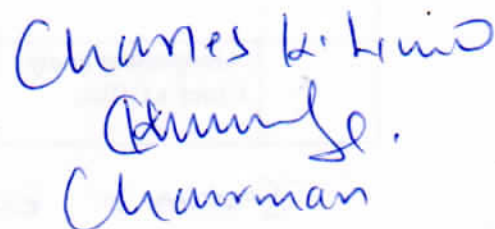 Charles K. Limo
Chairman